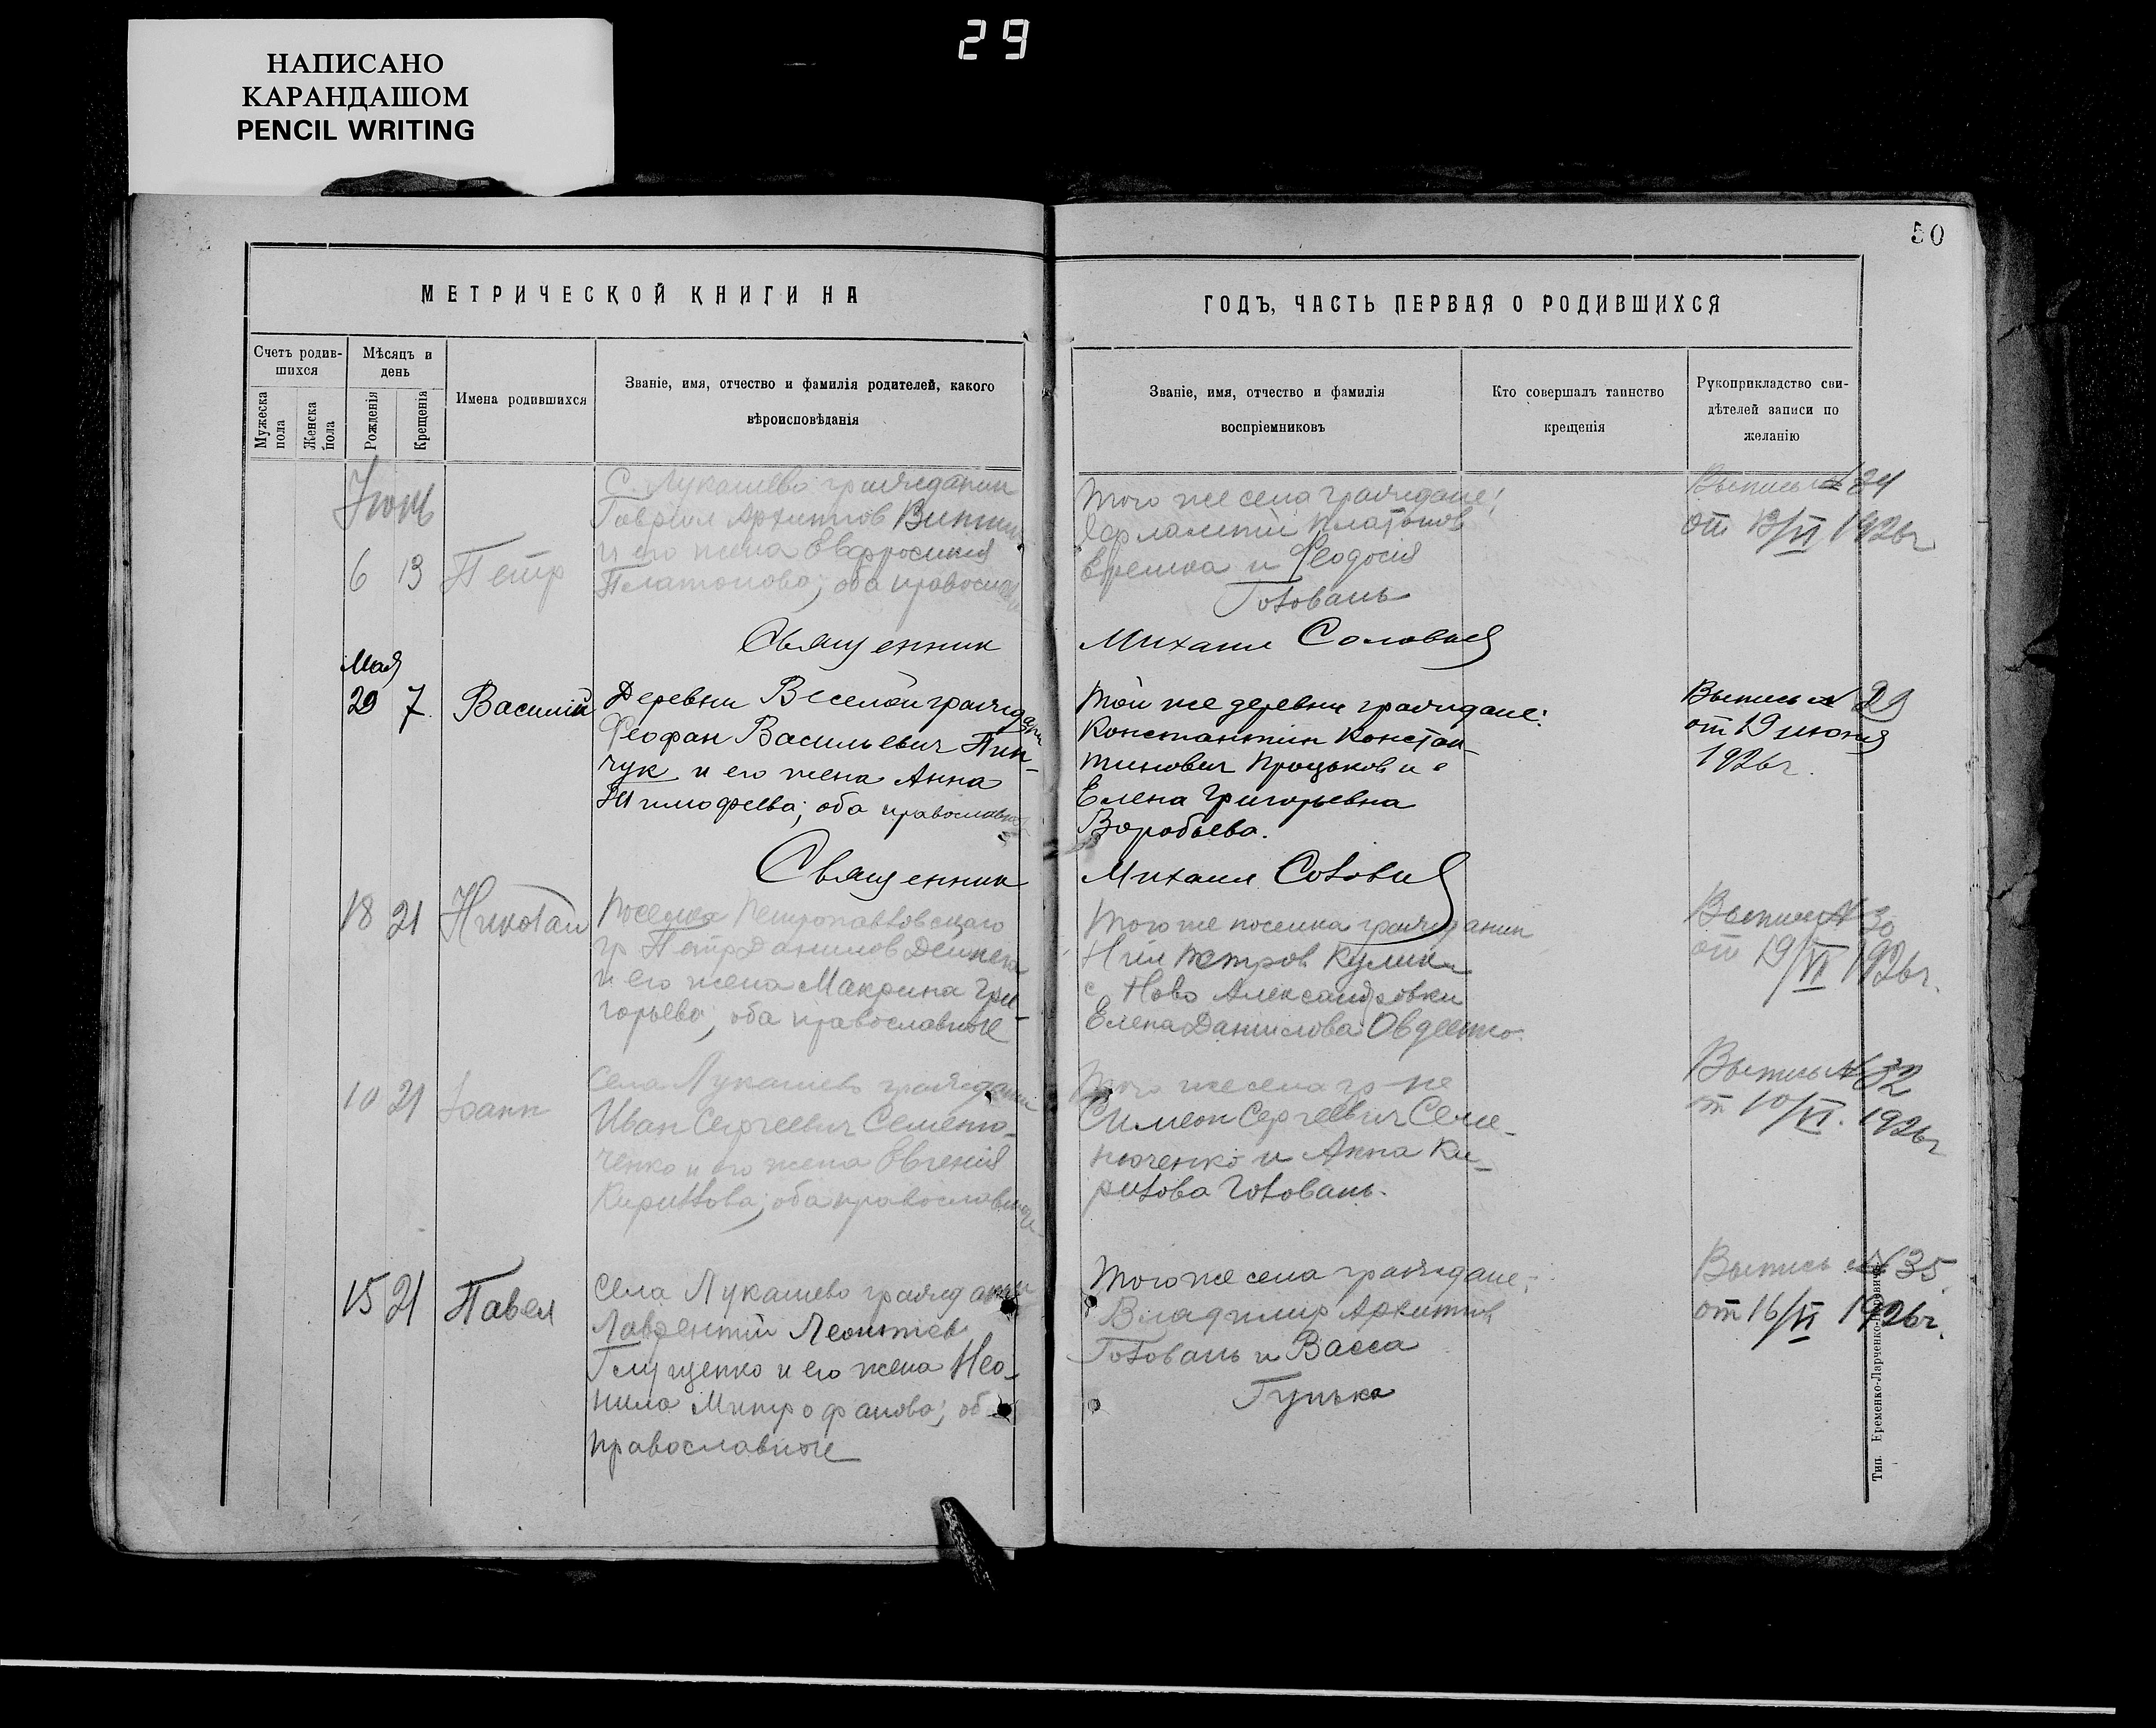 НАПИСАНО
КАРАНДАШОМ
PENCIL WRITING
29
50
МЕТРИЧЕСКОЙ КНИГИ НА
Счетъ родив-
шихся
Мужеска
пола
Женска
пола
Мѣсяцъ и
день
Рожденія
Крещенія
Имена родившихся
Званіе, имя, отчество и фамилія родителей, какого
вѣроисповѣданія
ГОДЪ, ЧАСТЬ ПЕРВАЯ О РОДИВШИХСЯ
Званіе, имя, отчество и фамилія
воспріемниковъ
Кто совершалъ таинство
крещенія
Рукоприкладство сви-
дѣтелей записи по
желанію
Июнь
6 13 Петр
С. Лукашево гражданин
Гавриил Архипов
и его жена Евфросиния
Платонова; оба
того же села граждане:
Харлампий Платонов
и Феодосия
Головань
Выпись №
от 13/VI 1926г
Священник Михаил Соловьев
Мая
29 7. Василий
Деревни Веселой граждан
Феофан Васильевич Пин-
чук и его жена Анна
Тимофеева; оба православные
той же деревни граждане:
Константин Констан-
тинович Процьков и
Елена Григорьевна
Воробьева.
Выпись № 29
от 19 июня
1926г.
Священник Михаил Соловьев
18 21 Николай
Поселка Петропавловского
гр Петр Данилов Дейнека
и его жена Макрина Гри-
горьева; оба православные
Того же поселка гражданин
Нил Петров Кулик и
с Ново Александровки
Елена Данилова Овдеенко.
Выпись № 30
от 19/VI 1926г.
10 21 Иоанн
Села Лукашево граждани
Иван Сергеевич Семеню-
ченко и его жена Евгения
Кириллова; оба православные
Того же села гр-не
Симеон Сергеевич Семе-
нюченко и Анна Ки-
рилова Головань.
Выпись № 32
от 10/VI. 1926г
15 21 Павел
Села Лукашево граждани
Лаврентий Леонтиев
Глущенко и его жена Нео-
нила Митрофанова; об
православные
Того же села граждане:
Владимир Архипов
Головань и Васса
Гунька
Выпись № 35
от 16/VI 1926г.
Тип. Еременко-Ларченко-